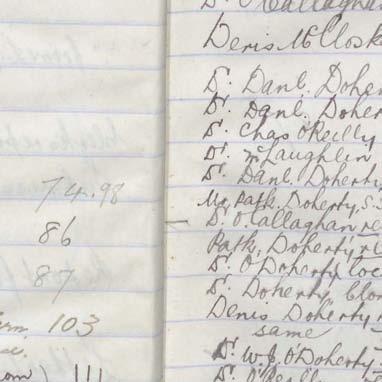 74.98
86
87
103
111
Dr. O'Callaghan
Denis McClosk
Dr. Danl. Doher
Dr. Danl. Doher
Dr. Chas O'Reilly
Dr. McLaughlin
Dr. Danl. Doherty
Mr. Patk. Doherty, S.S
Dr. O'Callaghan re
Patk. Doherty re
Dr. O'Doherty loc
Dr. Doherty blo
Denis Doherty
same
Dr. W.J. O'Doherty
Dr. O'Reilly